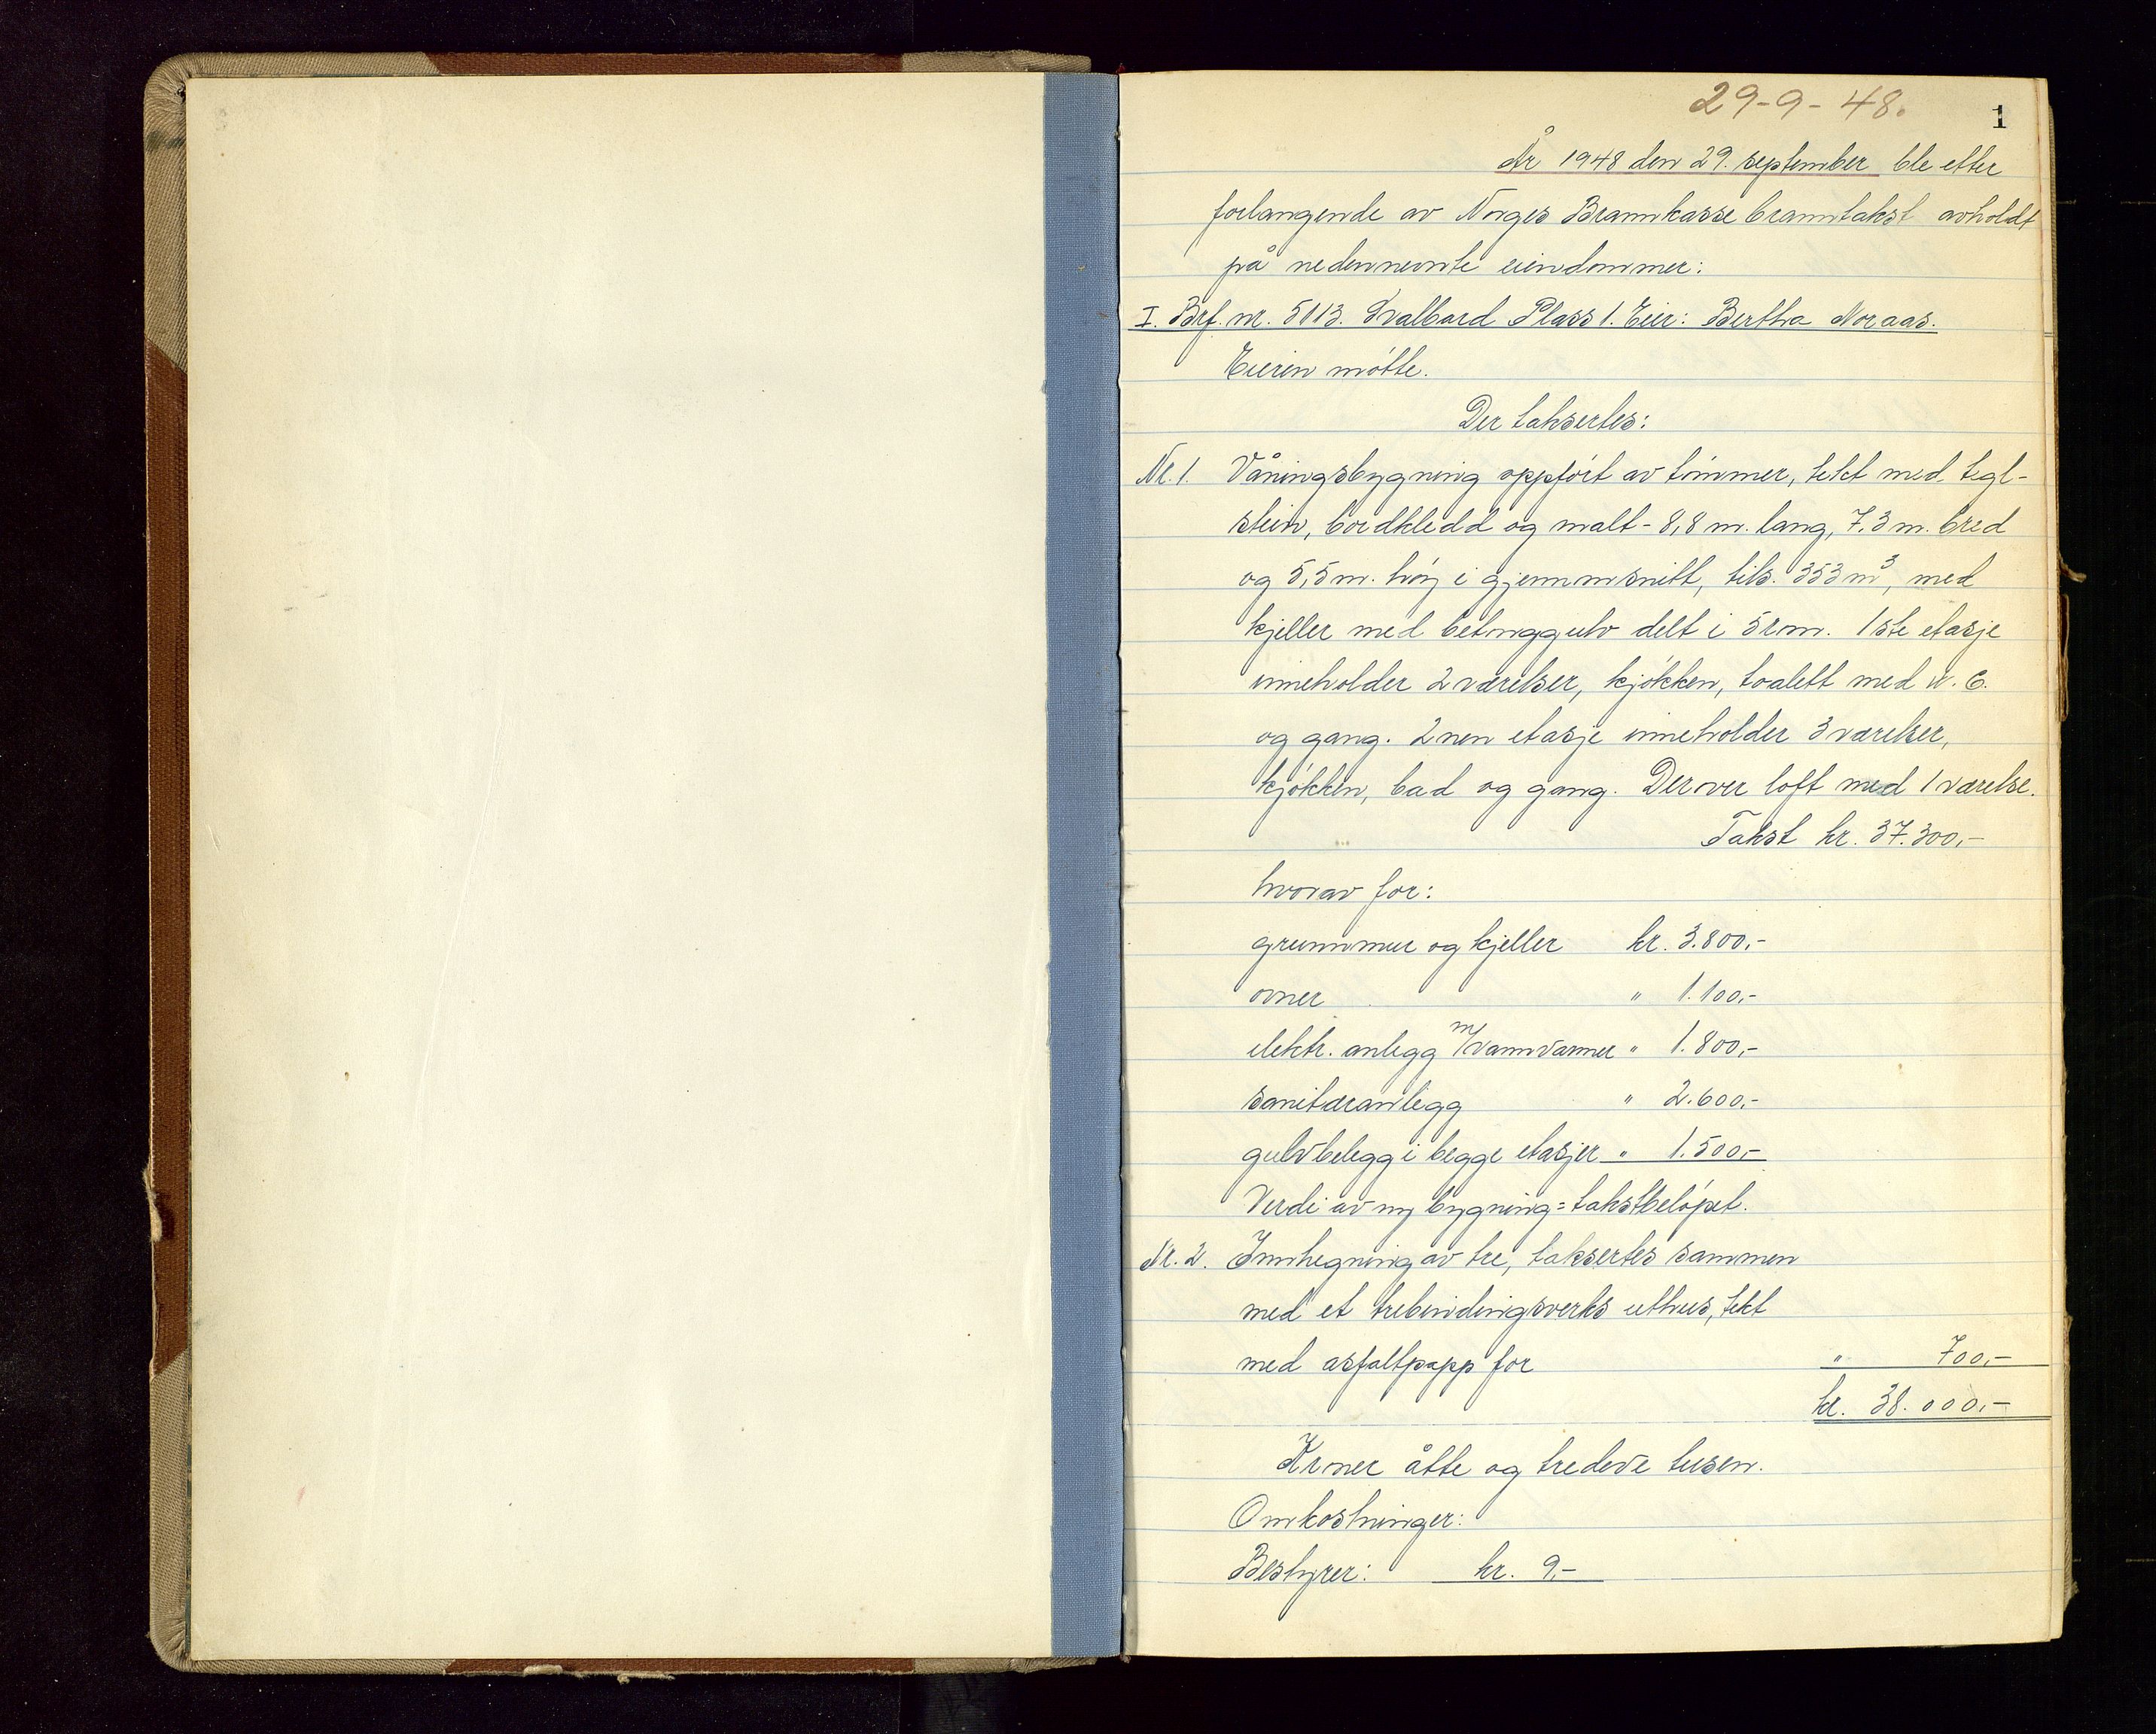 29-9-48.
1
År 1948 den 29. september ble etter
forlangende av Norges Brannkasse branntakst avholdt
på nedennevnte eiendommer:
I. Brf. nr. 5113. Svalbard Plass 1. Eier: Bertha Noraas.
Eieren møtte.
Der taksertes:
Nr. 1. Våningsbygning oppført av tømmer, tekt med tegl-
stein, bordkledd og malt - 8,8 m. lang, 7,3 m. bred
og 5,5 m. høy i gjennomsnitt, tils. 353 m³, med
kjeller med betonggulv delt i 5 rom. 1ste etasje
inneholder 2 værelser, kjøkken, toalett med W.C.
og gang. 2nen etasje inneholder 3 værelser,
kjøkken, bad og gang. Derover loft med 1 værelse.
Takst kr. 37.300,-
hvorav for:
grunnmur og kjeller kr. 3.800,-
ovner " 1.100,-
elektr. anlegg m/vannvarmer " 1.800,-
sanitæranlegg " 2.600,-
gulvbelegg i begge etasjer " 1.500,-
Verdi av ny bygning = takstbeløpet.
Nr. 2. Innhegning av tre, taksertes sammen
med et trebindingsverks uthus, tekt
med asfaltpapp for " 700,-
kr. 38.000,-
Kroner åtte og tredeve tusen.
Omkostninger:
Bestyrer: kr. 9,-